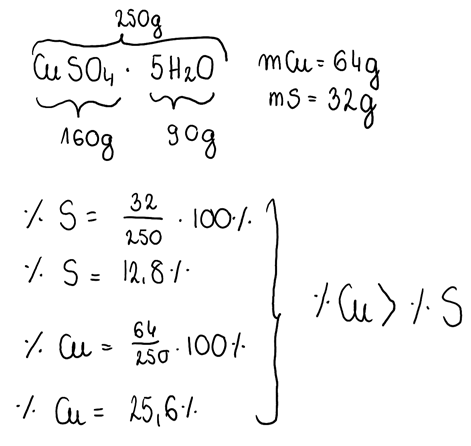 250g
CuSO4 · 5H2O
160g 90g
mCu = 64g
mS = 32g
% S = 32/250 · 100%
% S = 12,8%
% Cu = 64/250 · 100%
% Cu = 25,6%
% Cu > % S